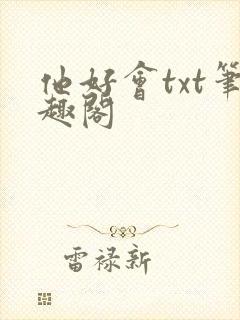 他好會txt筆
趣閣
雷禄新